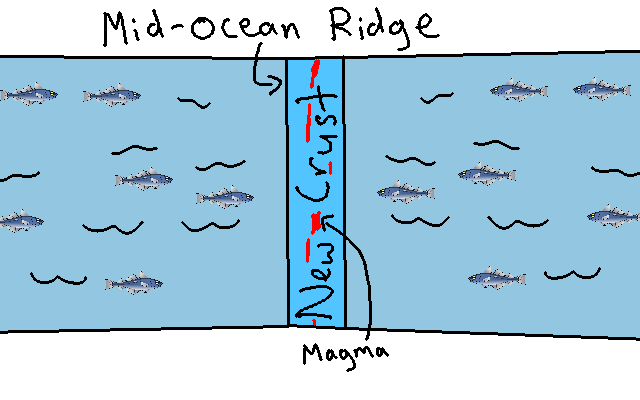 Mid-Ocean Ridge
New Crust
Magma